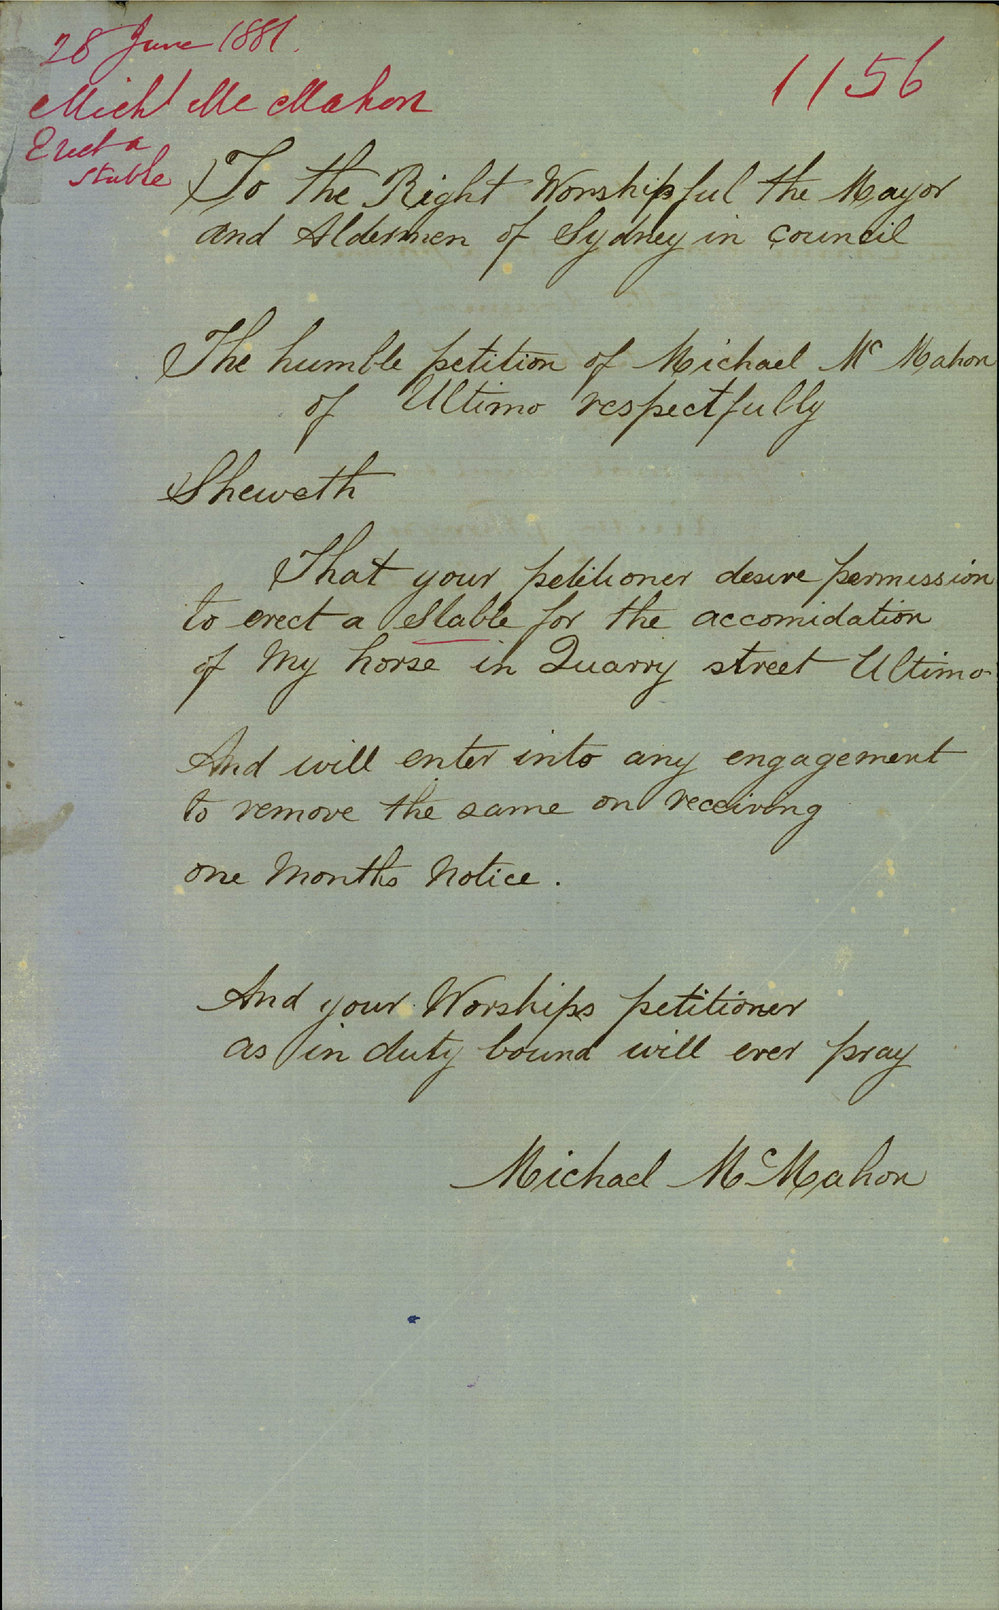 28 June 1881.
1156
Michl Mc Mahon
Erect a
stable
To the Right Worshipful the Mayor
and Aldermen of Sydney in Council
The humble petition of Michael Mc Mahon
of Ultimo respectfully
Sheweth
That your petitioner desire permission
to erect a Stable for the accomidation
of My horse in Quarry street Ultimo
And will enter into any engagement
to remove the same on receiving
one Months Notice.
And your Worships petitioner
as in duty bound will ever pray
Michael McMahon